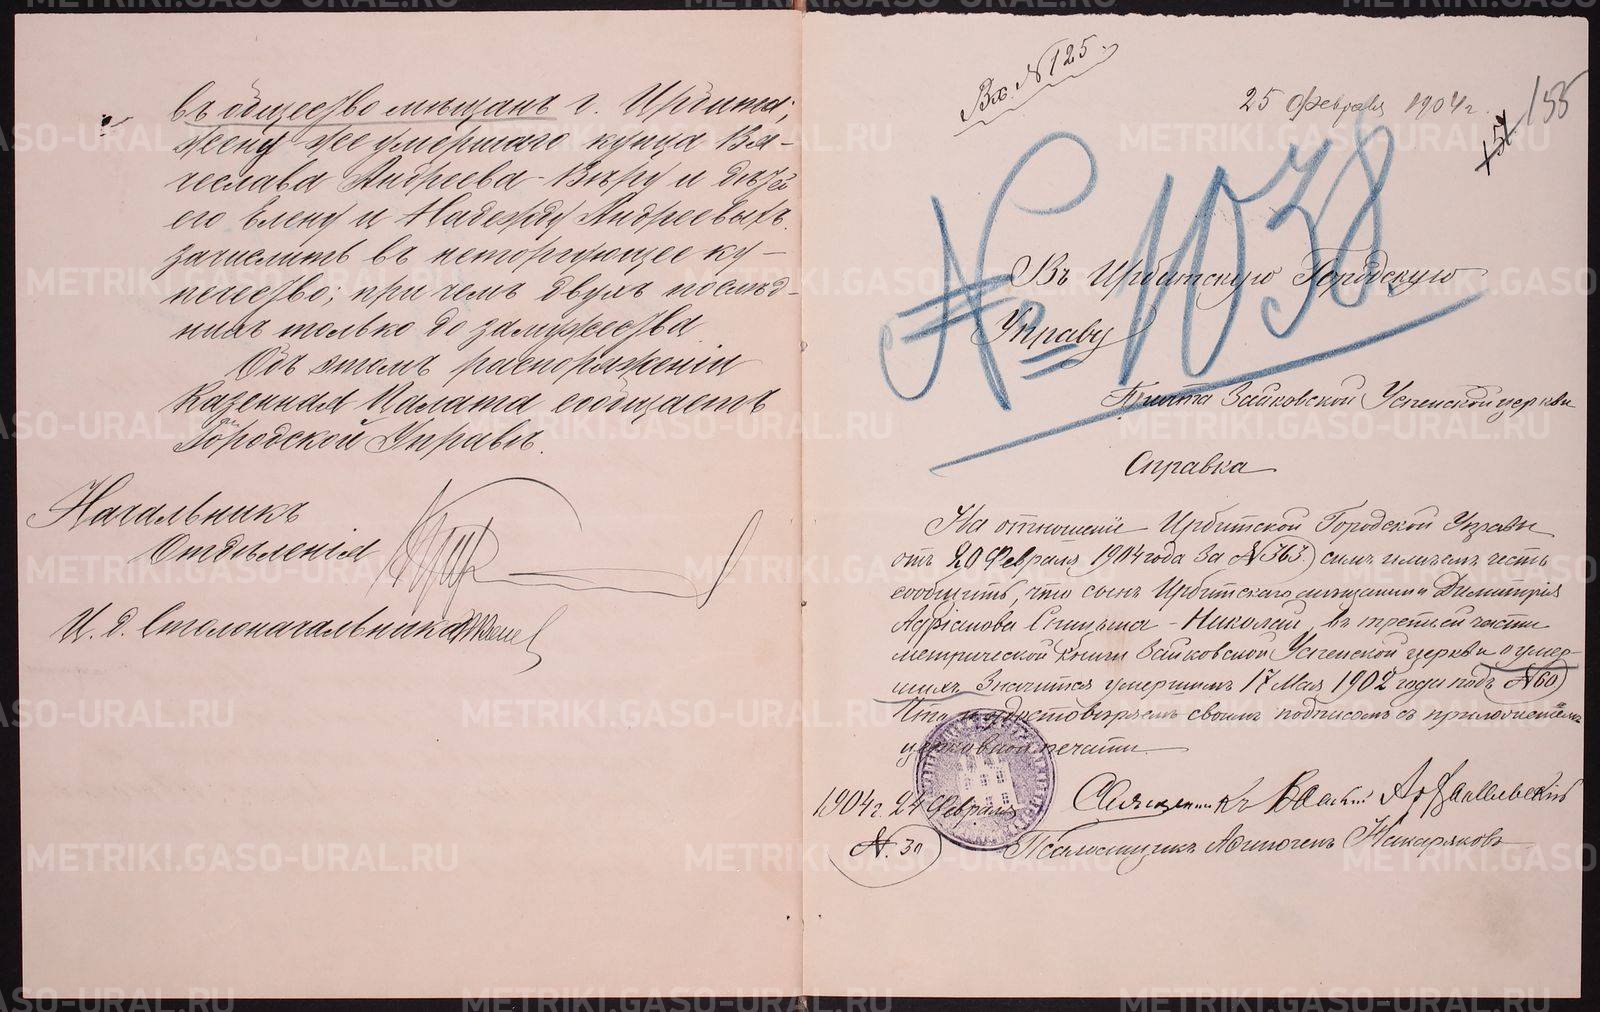 въ общество мѣщанъ г. Ирбита;
жену же умершаго купца Вя-
чеслава Андреева - Вѣру и дѣтей
его Елену и Надежду Андреевыхъ
зачислить въ неторгующее ку-
печество; при чемъ двухъ послѣд-
нихъ только до замужества.
Объ этомъ распоряженіи
Казенная Палата сообщаетъ
Городской Управѣ.
Начальникъ
Отдѣленія
И. д. Столоначальника
Вх. N 125.
25 Февраля 1904 г.
154 155
№ 1038.
Въ Ирбитскую Городскую
Управу
Причта Зайковской Успенской церкви
Справка
На отношеніе Ирбитской Городской Управы
отъ 20 Февраля 1904 года за N 363 симъ имѣемъ честь
сообщить, что сынъ Ирбитскаго мѣщанина Димитрія
Адріанова - Николай, въ третьей части
метрической книги Зайковской Успенской церкви о умер-
шихъ значится умершимъ 17 Мая 1902 года подъ N 60
Что и удостовѣряемъ своимъ подписомъ съ приложеніемъ
церковной печати.
1904 г. 24 Февраля Священникъ
N. 30 Псаломщикъ Афиногенъ
METRIKI.GASO-URAL.RU